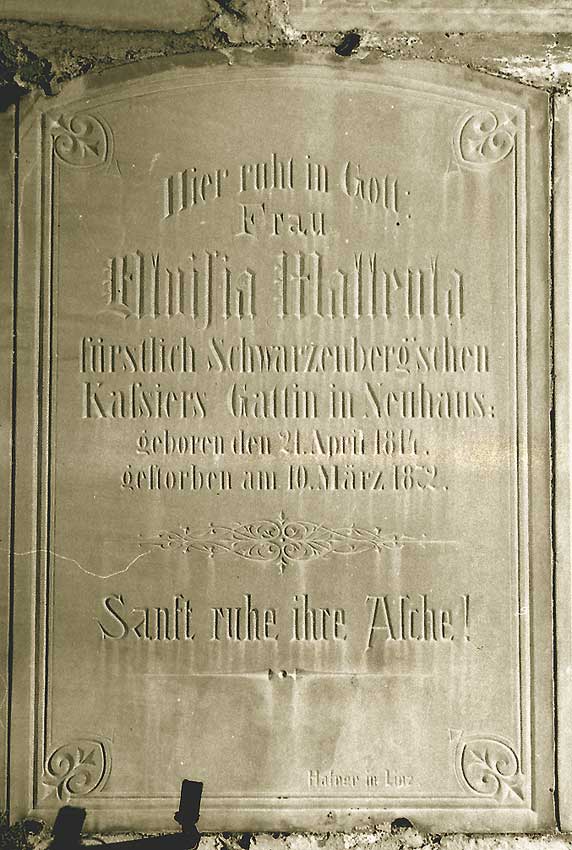 Hier ruht in Gott:
Frau
Aloiſia
fürstlich Schwarzenberg'schen
Kaſsiers Gattin in Neuhaus:
geboren den 21. April 1814.
geſtorben am 10. März 1872.
Sanft ruhe ihre Aſche!
Hafner in Linz